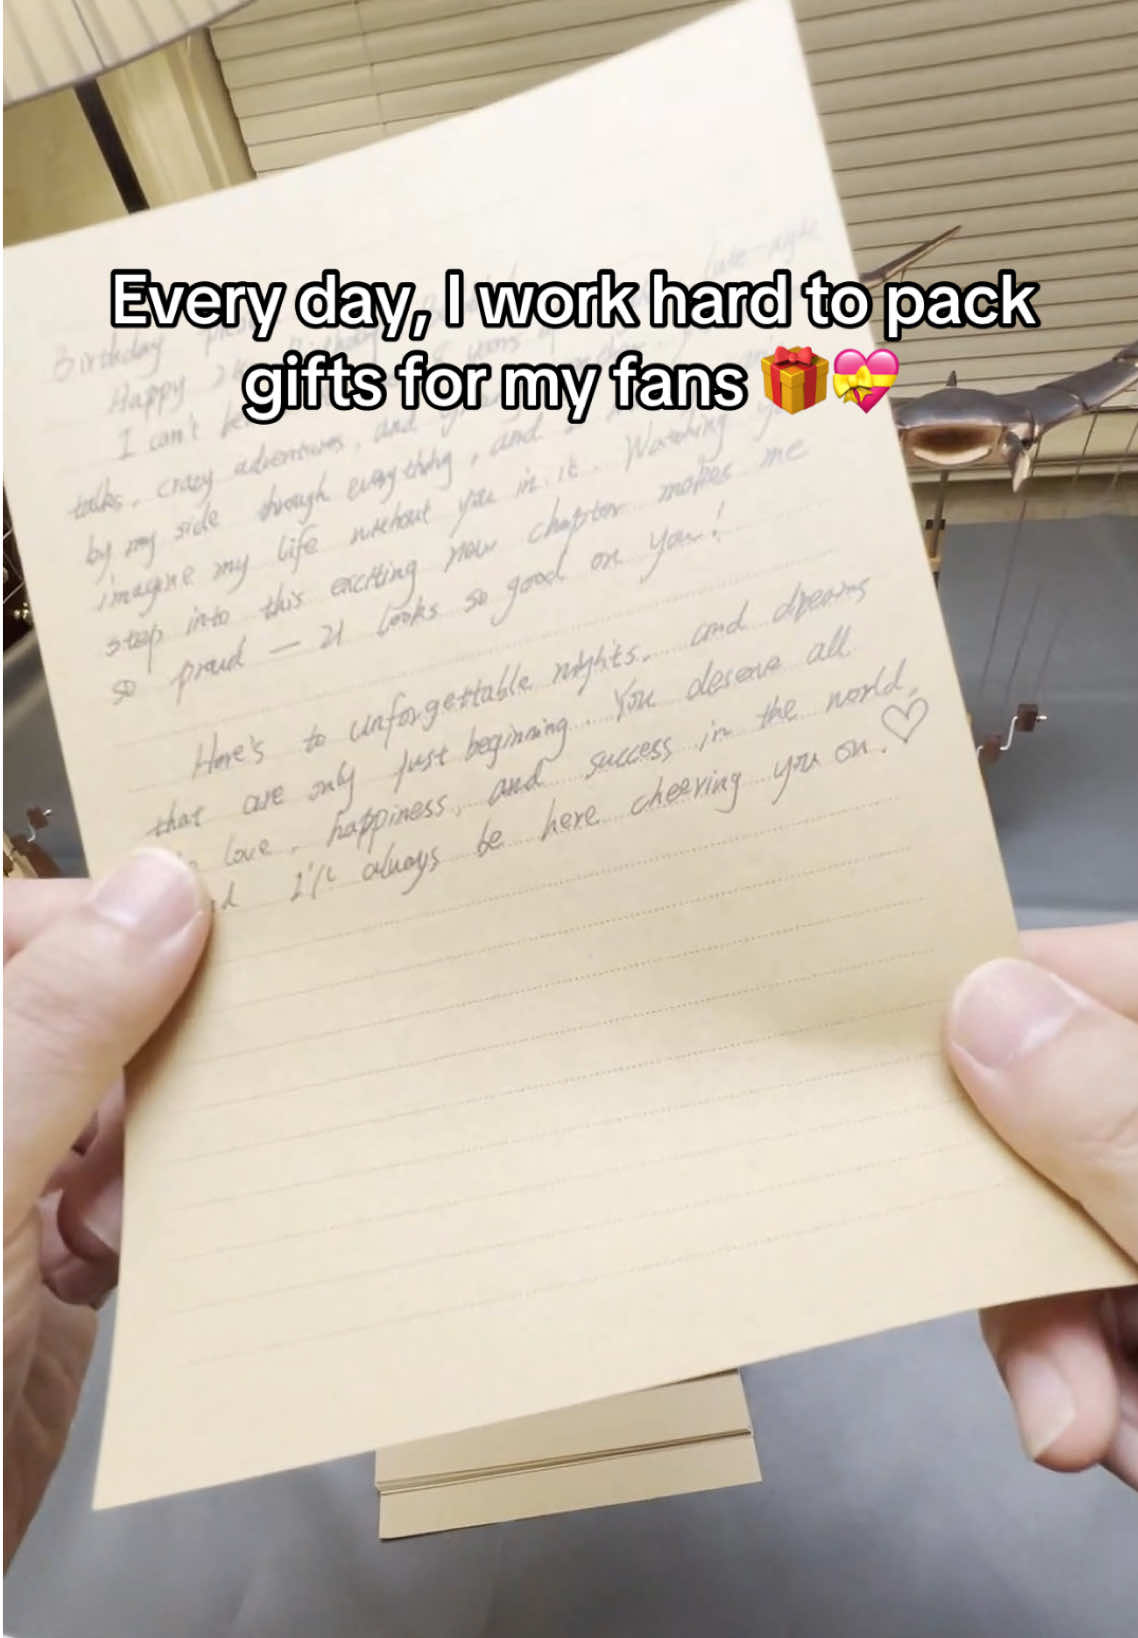 Every day, I work hard to pack
gifts for my fans 🎁💝
Birthday
Happy
late-night
I can't
talks, crazy adventures, and
by my side through everything, and
imagine my life without you in it. Watching
step into this exciting new chapter makes me
so proud — 21 looks so good on you!
Here's to unforgettable nights, and dreams
that are only just beginning. You deserve all
love, happiness, and success in the world,
I'll always be here cheering you on. ♡